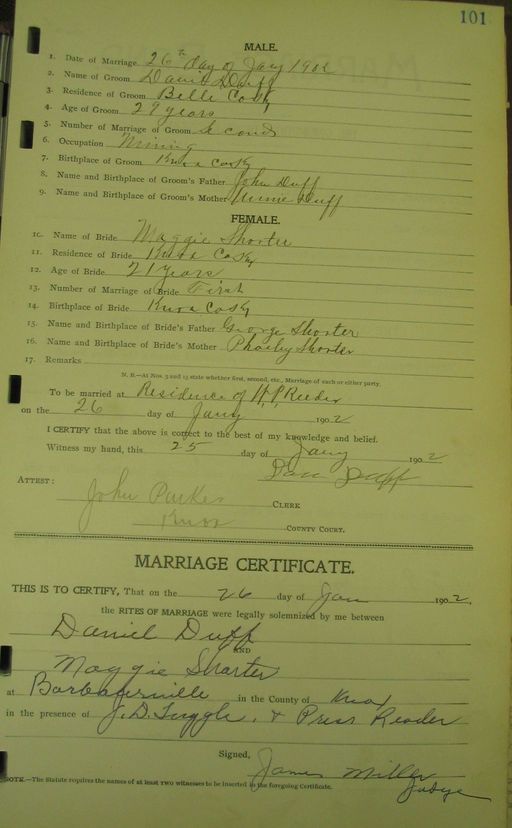 101
MALE.
1. Date of Marriage 26th day of Jany 1902
2. Name of Groom David Duff
3. Residence of Groom Bell CoKy
4. Age of Groom 29 years
5. Number of Marriage of Groom Second
6. Occupation Mining
7. Birthplace of Groom Knox CoKy
8. Name and Birthplace of Groom's Father John Duff
9. Name and Birthplace of Groom's Mother Duff
FEMALE.
10. Name of Bride Maggie Shorter
11. Residence of Bride Knox CoKy
12. Age of Bride 21 years
13. Number of Marriage of Bride First
14. Birthplace of Bride Knox CoKy
15. Name and Birthplace of Bride's Father George Shorter
16. Name and Birthplace of Bride's Mother Phoeby Shorter
17. Remarks
N. B.—At Nos. 5 and 13 state whether first, second, etc., Marriage of each or either party.
To be married at Residence of H.P. Reeder
on the 26 day of Jany 1902
I CERTIFY that the above is correct to the best of my knowledge and belief.
Witness my hand, this 25 day of Jany 1902
Dan Duff
ATTEST:
John Parker CLERK
Knox COUNTY COURT.
MARRIAGE CERTIFICATE.
THIS IS TO CERTIFY, That on the 26 day of Jan 1902,
the RITES OF MARRIAGE were legally solemnized by me between
Daniel Duff
AND
Maggie Sharter
at in the County of Knox
in the presence of J.D. Tuggle, & Press Reader
Signed,
James Miller
Judge
NOTE.—The Statute requires the names of at least two witnesses to be inserted in the foregoing Certificate.